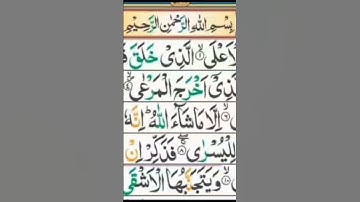 بِسْمِ اللّٰهِ الرَّحْمٰنِ الرَّحِيْمِ
لْاَعْلَى ۙ﴿۱﴾ الَّذِىْ خَلَقَ
الَّذِىْۤ اَخْرَجَ الْمَرْعٰى ۙ﴿۴﴾
اِلَّا مَا شَآءَ اللّٰهُ ؕ اِنَّهٗ
لِلْيُسْرٰى ۚ﴿۸﴾ فَذَكِّرْ اِنْ
﴿۱۰﴾ وَيَتَجَنَّبُهَا الْاَشْقَى